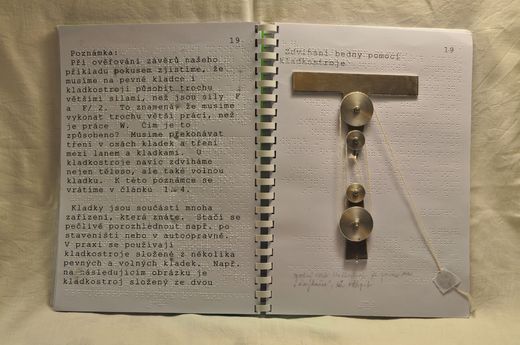 19
Poznámka:
Při ověřování závěrů našeho
příkladu pokusem zjistíme, že
musíme na pevné kladce i
kladkostroji působit trochu
většími silami, než jsou síly F
a F/2. To znamená, že musíme
vykonat trochu větší práci, než
je práce W. Čím je to
způsobeno? Musíme překonávat
tření v osách kladek a tření
mezi lanem a kladkami. U
kladkostroje navíc zdviháme
nejen těleso, ale také volnou
kladku. K této poznámce se
vrátíme v článku 1.4.
Kladky jsou součástí mnoha
zařízení, která znáte. Stačí se
pečlivě porozhlédnout např. po
staveništi nebo v autoopravně.
V praxi se používají
kladkostroje složené z několika
pevných a volných kladek. Např.
na následujícím obrázku je
kladkostroj složený ze dvou
19
Zdvihání bedny pomocí
kladkostroje